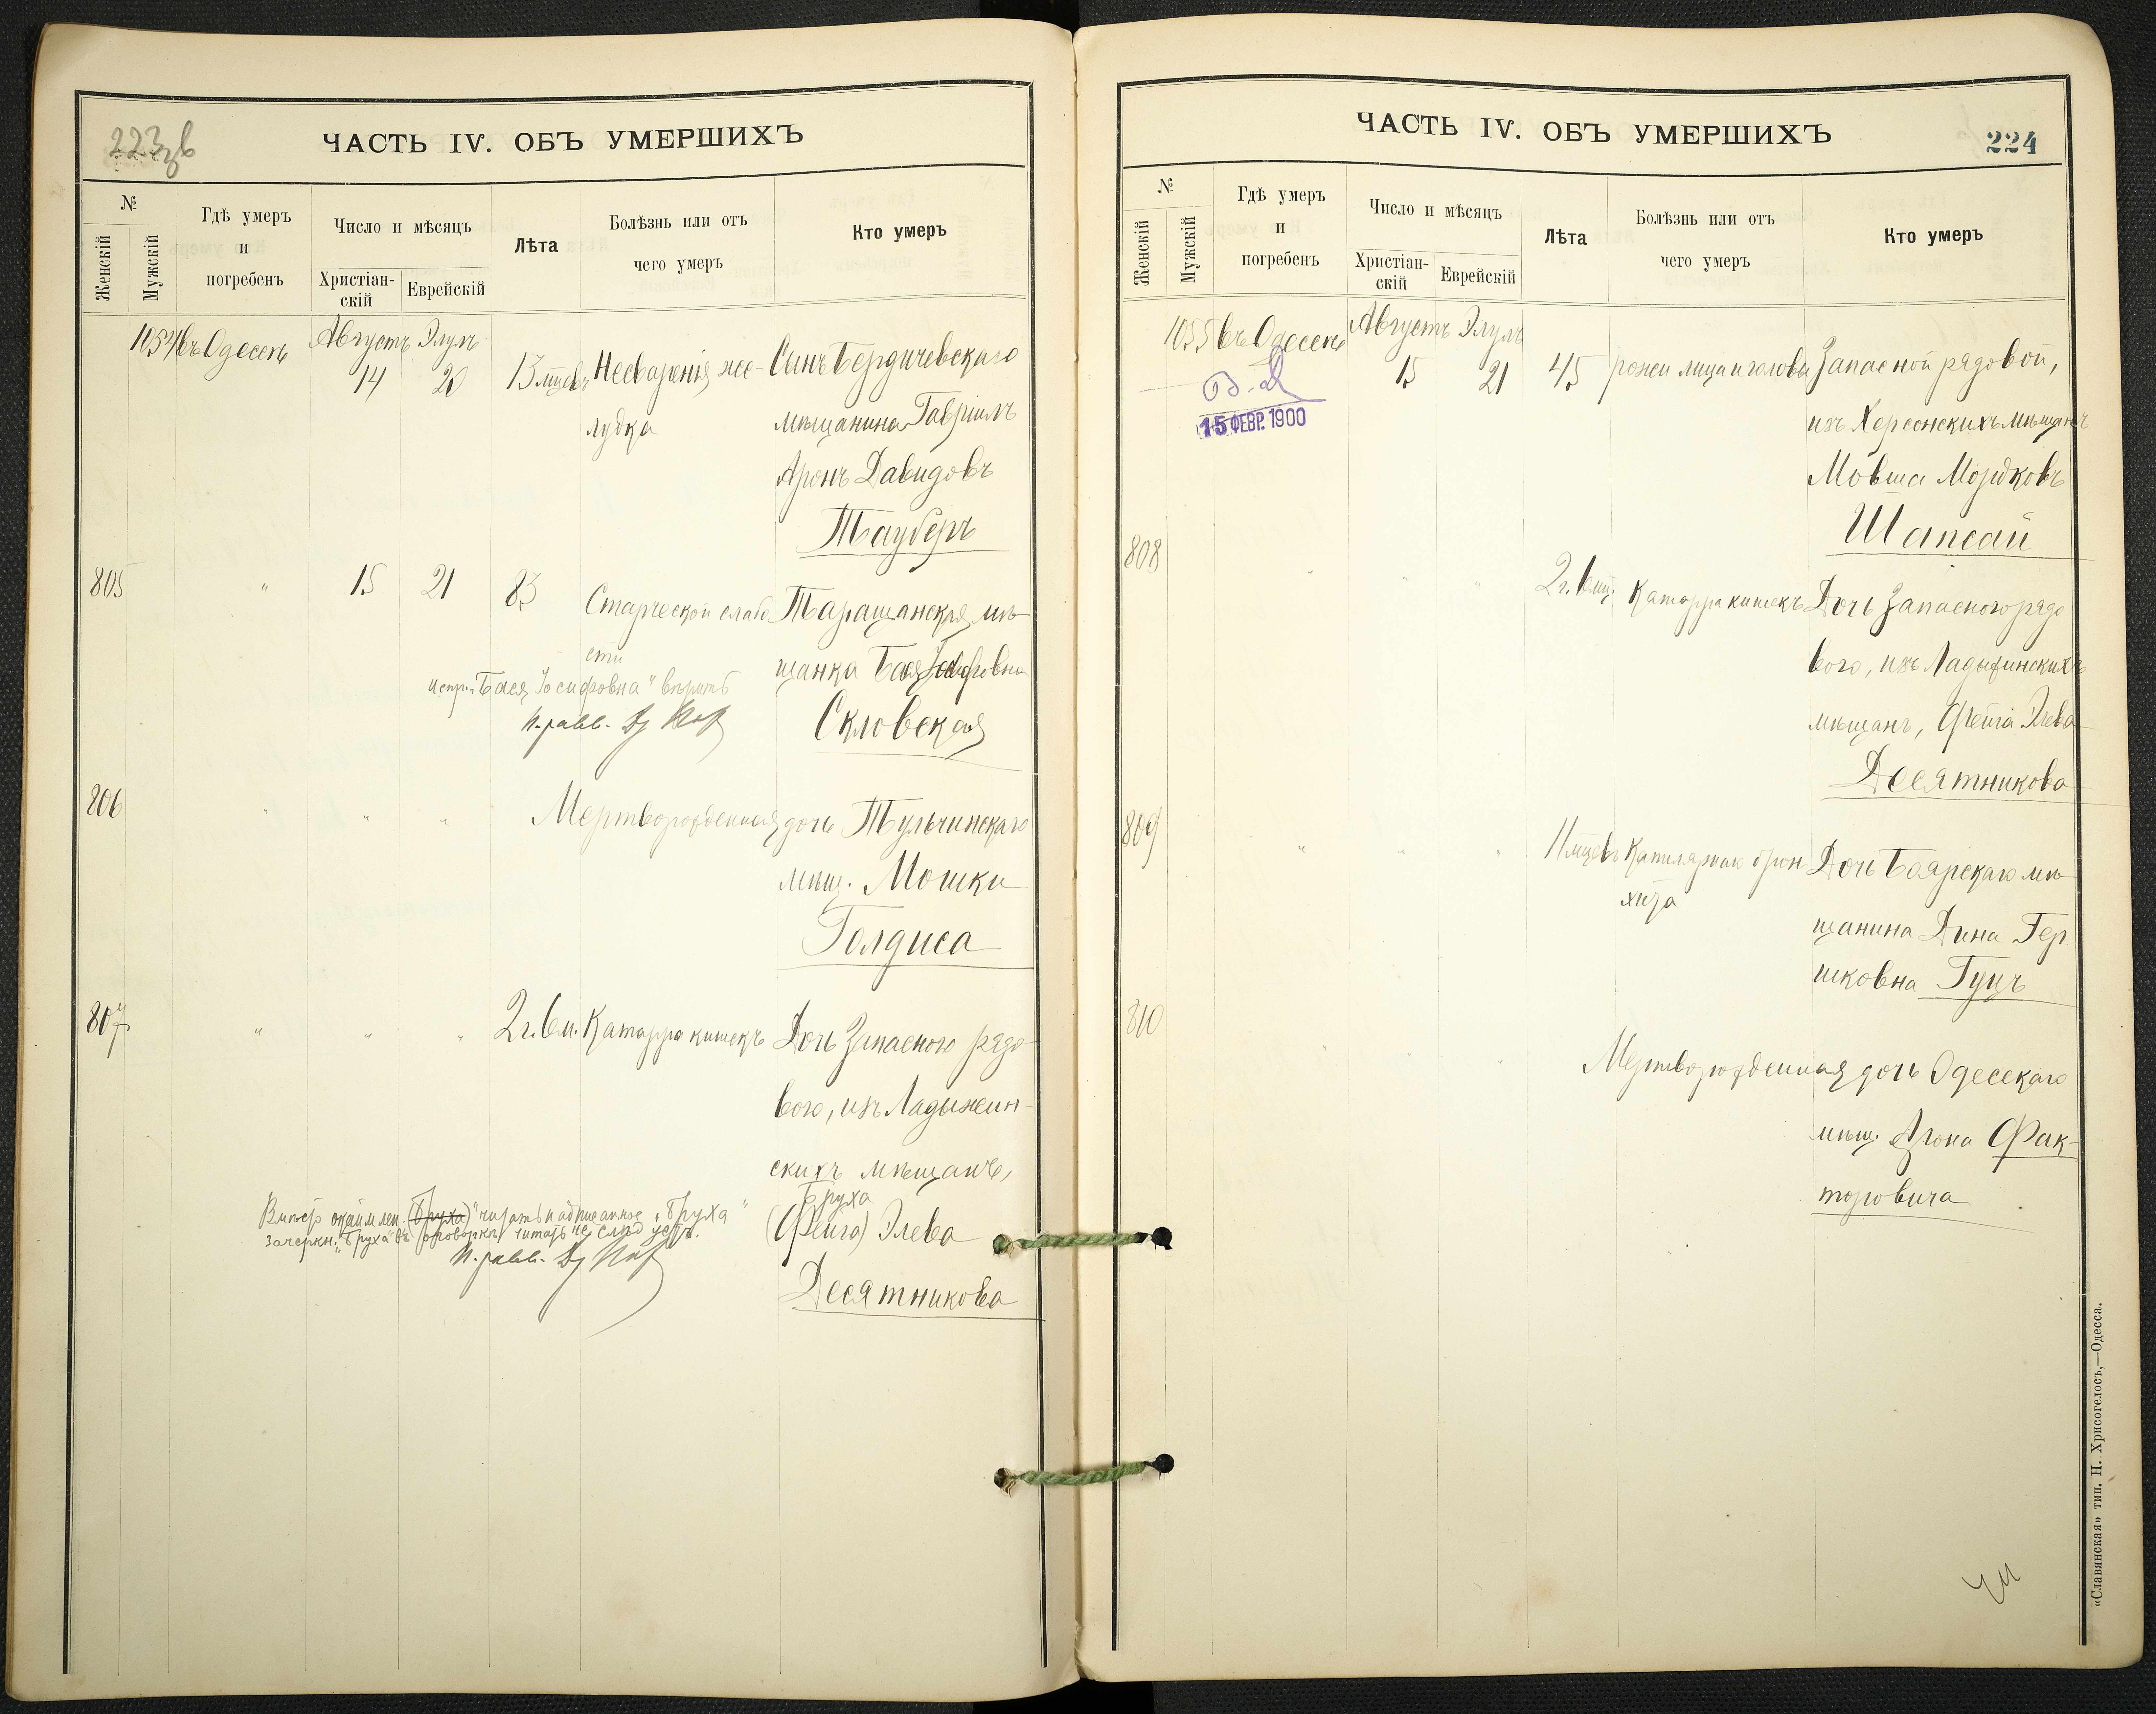 223 об
ЧАСТЬ IV. ОБЪ УМЕРШИХЪ
№
Женскій
Мужскій
Гдѣ умеръ
и
погребенъ
Число и мѣсяцъ
Христіан-
скій
Еврейскій
Лѣта
Болѣзнь или отъ
чего умеръ
Кто умеръ
1054 въ Одессѣ Августъ Элулъ
14 20 13 мцевъ Несваренія же- Сынъ Бердичевскаго
лудка мѣщанина Гавріилъ
Аронъ Давидовъ
Тауберъ
805 " 15 21 83 Старческой слабо- Таращанская мѣ-
сти щанка Бася Іосифовна
испр. "Бася Іосифовна" вѣрить
И. равв. Скловская
806 " " " Мертворожденная дочь Тульчинскаго
мѣщ. Мошки
Голдиса
807 " " " 2 г. 6 м. Катарра кишекъ Дочь Запасного рядо-
вого, изъ Ладыжин-
скихъ мѣщанъ,
Бруха
(Фейга) Элева
Десятникова
Вмѣсто окаймлен. (Бруха)" читать надписанное "Бруха"
зачеркн. "Бруха" въ оговоркѣ читать не слѣдуетъ.
И. равв.
ЧАСТЬ IV. ОБЪ УМЕРШИХЪ
224
№
Женскій
Мужскій
Гдѣ умеръ
и
погребенъ
Число и мѣсяцъ
Христіан-
скій
Еврейскій
Лѣта
Болѣзнь или отъ
чего умеръ
Кто умеръ
1055 въ Одессѣ Августъ Элулъ
15 21 45 рожи лица и головы Запасной рядовой,
15 ФЕВР. 1900
изъ Херсонскихъ мѣщанъ
Мовша Мордковъ
Шапсай
808 " " " 2 г. 6 мц. Катарра кишекъ Дочь Запасного рядо
вого, изъ Ладыжинскихъ
мѣщанъ, Фейга Элева
Десятникова
809 " " " 11 мцевъ Капилярнаго брон- Дочь Боярскаго мѣ-
хита
щанина Дина Гер
шковна Гуцъ
810 " " " Мертворожденная дочь Одесскаго
мѣщ. Арона Фак-
торовича
«Славянская» тип. Н. Хрисогелосъ,—Одесса.